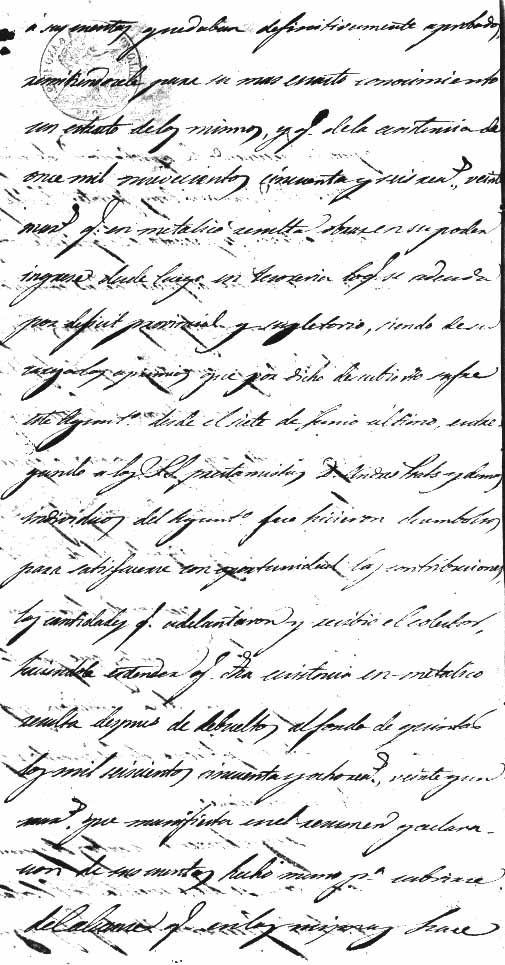 á sus cuentas quedaban definitivamente aprobadas,
remitiendosele para su mas exacto conocimiento
un estracto de los mismos, y q.e de la existencia de
once mil novecientos cincuenta y seis rea.s, veinte
mar.s q.e en metalico resulta obrar en su poder
ingrese desde luego en tesoreria lo q.e se adeuda
por deficit provincial y supletorio, siendo de su
cargo los apremios que por dicho descubierto sufre
este Ayunt.o desde el siete de Junio último, entre-
gando a los S.S. prestamistas D. y demas
individuos del Ayunt.o que hicieron desembolsos
para satisfacerse con oportunidad las contribuciones
las cantidades q.e adelantaron y recibió el colector,
haciendole entender q.e dha existencia en metalico
resulta despues de debueltos al fondo de quintas
los mil seiscientos cincuenta y ocho rea.s, veinte y un
mar.s que manifiesta en el resumen y aclara-
cion de sus cuentas, hecho mano p.a cubrirse
del alcance q.e en las mismas hace